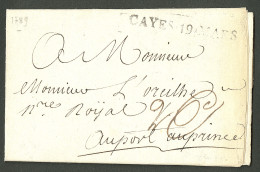 1789
CAYES 19 MARS
A Monsieur
Monsieur L'oreilhe
nre Royal
auport auprince